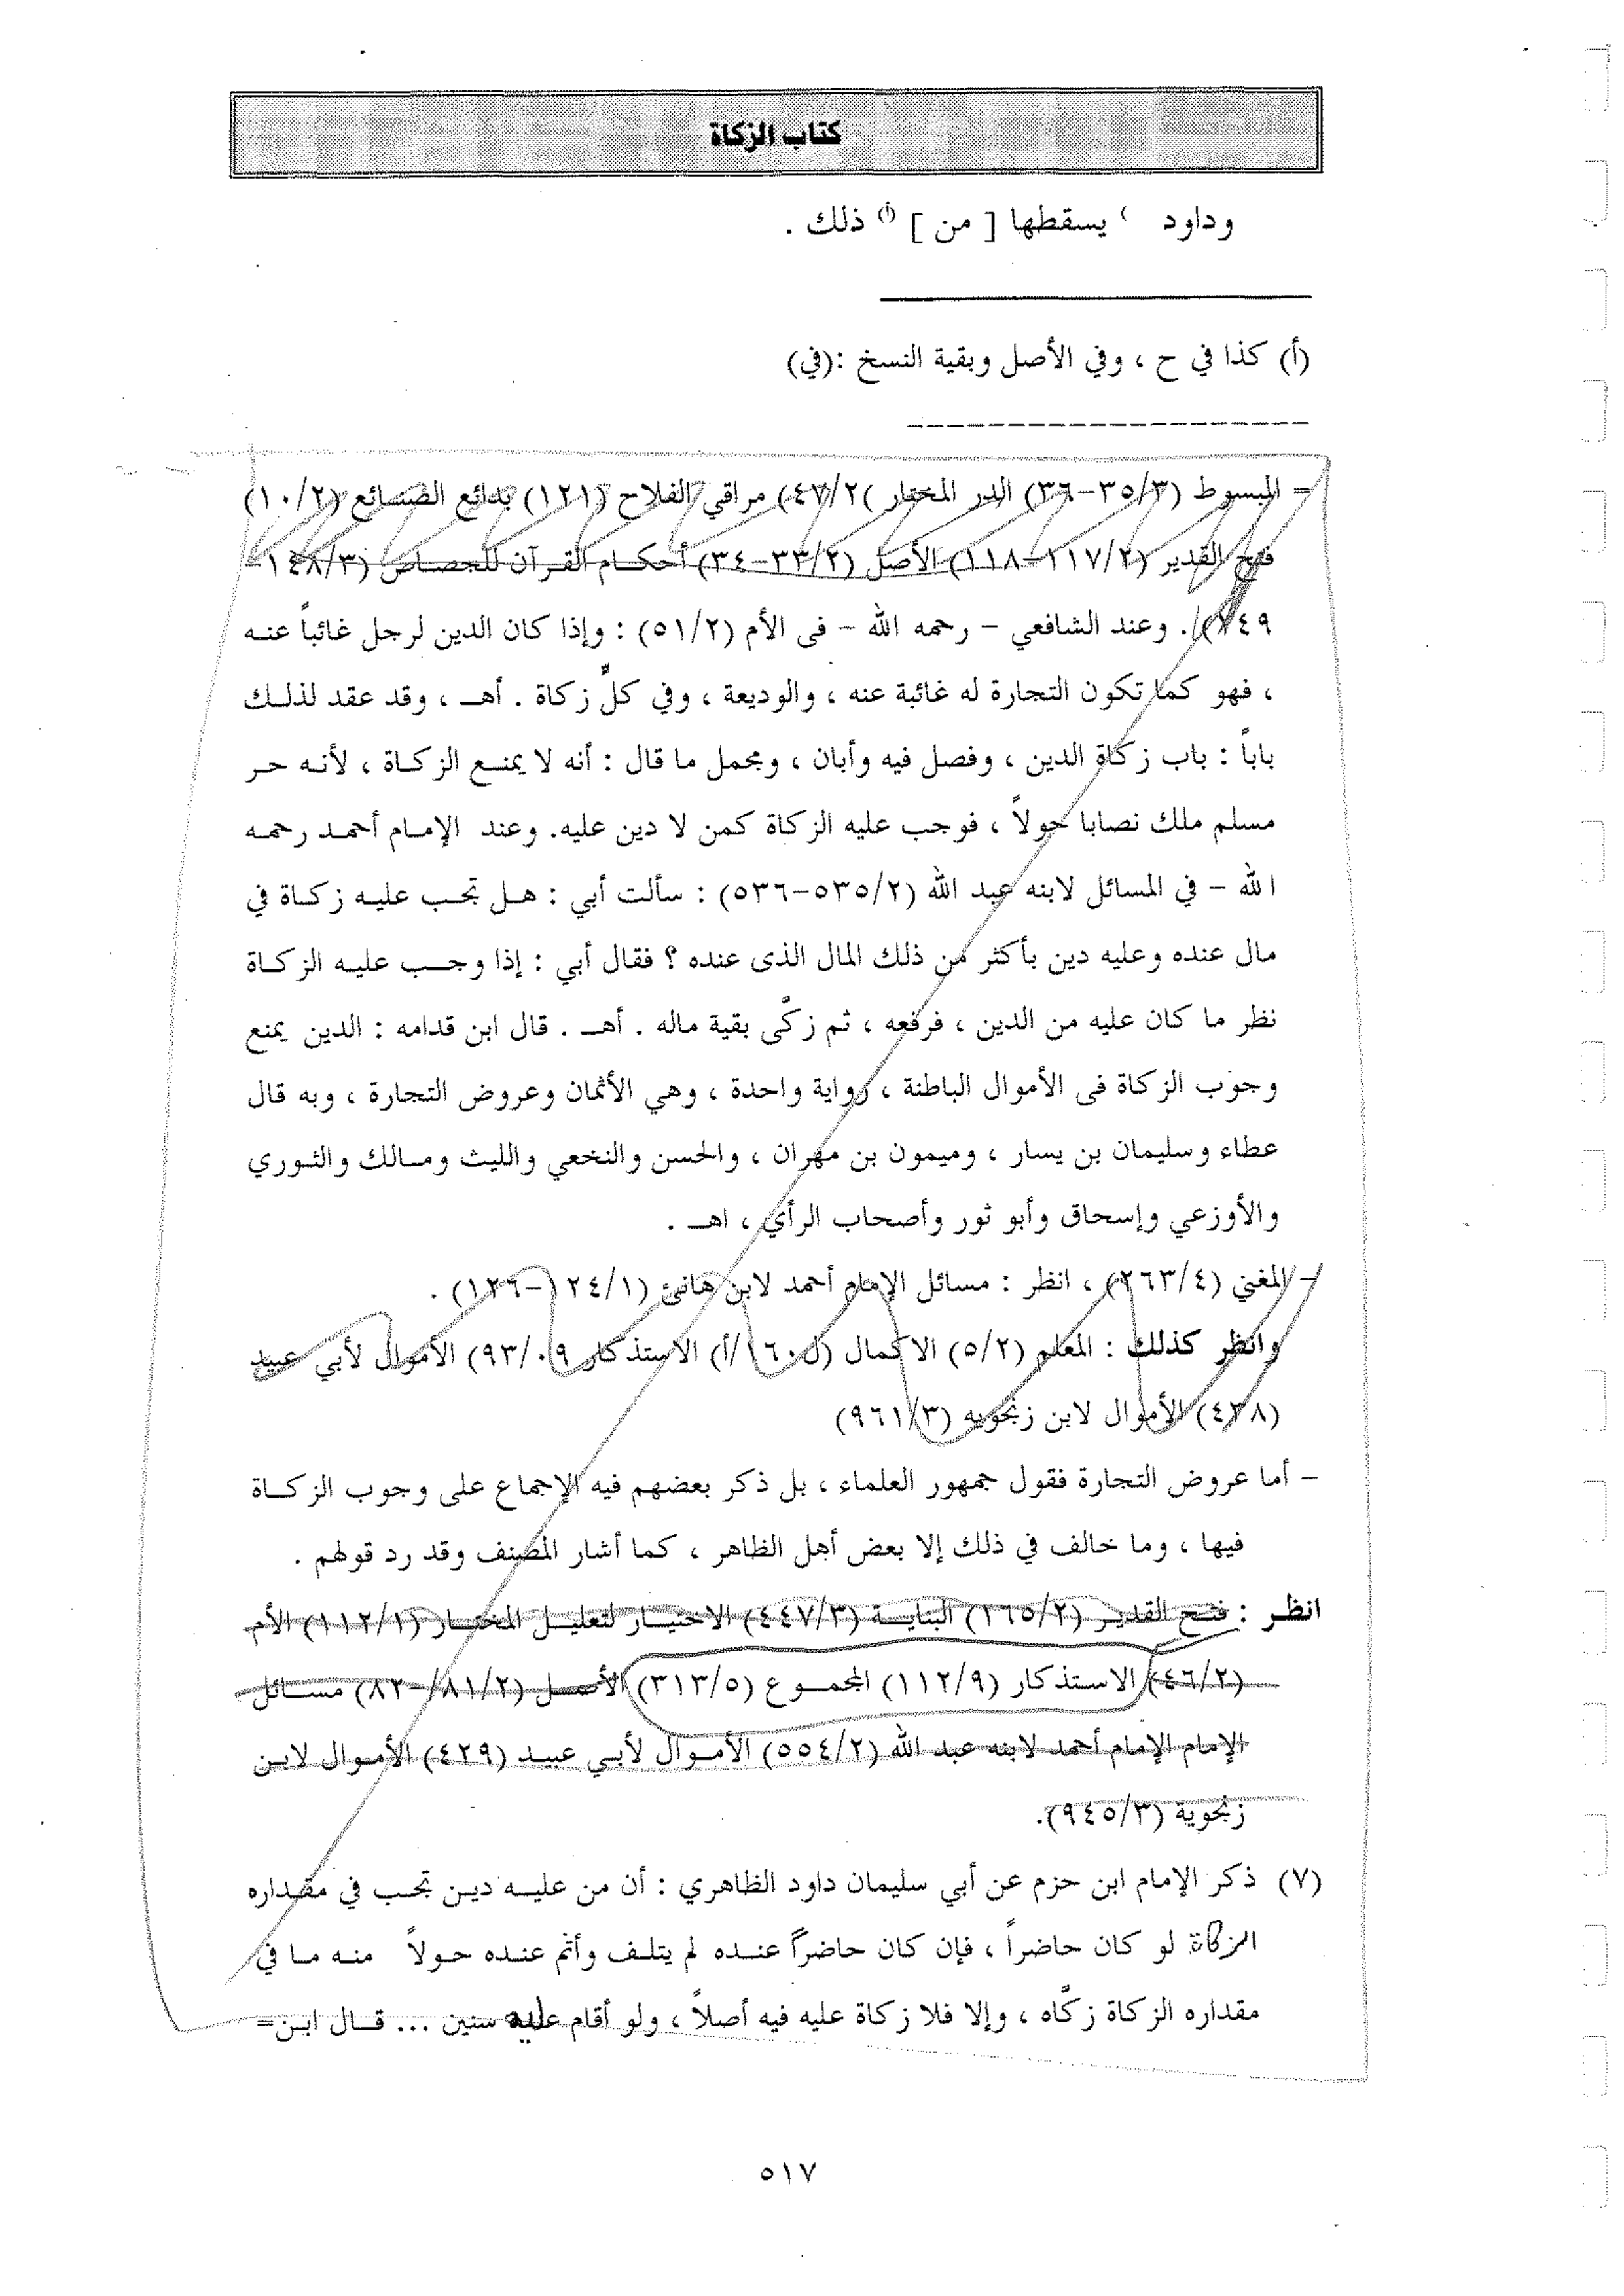 كتاب الزكاة
وداود ، يسقطها [ من ] (أ) ذلك .
(أ) كذا في ح ، وفي الأصل وبقية النسخ :(في)
= المبسوط (٣/٣٥-٣٦) الدر المختار )٢/٤٧) مراقي الفلاح (١٢١) بدائع الصنائع (٢/١٠)
فتح القدير (٢/١١٧-١١٨) الأصل (٢/٣٣-٣٤) أحكام القرآن للجصاص (٣/١٤٨-
١٤٩). وعند الشافعي - رحمه الله - فى الأم (٢/٥١) : وإذا كان الدين لرجل غائباً عنه
، فهو كما تكون التجارة له غائبة عنه ، والوديعة ، وفي كلٍّ زكاة . أهـ ، وقد عقد لذلك
باباً : باب زكاة الدين ، وفصل فيه وأبان ، ومجمل ما قال : أنه لا يمنع الزكاة ، لأنه حر
مسلم ملك نصابا حولاً ، فوجب عليه الزكاة كمن لا دين عليه. وعند الإمام أحمد رحمه
الله - في المسائل لابنه عبد الله (٢/٥٣٥-٥٣٦) : سألت أبي : هل تجب عليه زكاة في
مال عنده وعليه دين بأكثر من ذلك المال الذى عنده ؟ فقال أبي : إذا وجب عليه الزكاة
نظر ما كان عليه من الدين ، فرفعه ، ثم زكّى بقية ماله . أهـ . قال ابن قدامه : الدين يمنع
وجوب الزكاة فى الأموال الباطنة ، رواية واحدة ، وهي الأثمان وعروض التجارة ، وبه قال
عطاء وسليمان بن يسار ، وميمون بن مهران ، والحسن والنخعي والليث ومالك والثوري
والأوزعي وإسحاق وأبو ثور وأصحاب الرأي ، اهـ .
- المغني (٤/٢٦٣) ، انظر : مسائل الإمام أحمد لابن هانئ (١/١٢٤-١٢٦) .
وانظر كذلك : المعلم (٢/٥) الاكمال (ل١٦٠/أ) الاستذكار ٩/٩٣) الأموال لأبي عبيد
(٤٣٨) الأموال لابن زنجويه (٣/٩٦١)
- أما عروض التجارة فقول جمهور العلماء ، بل ذكر بعضهم فيه الإجماع على وجوب الزكاة
فيها ، وما خالف في ذلك إلا بعض أهل الظاهر ، كما أشار المصنف وقد رد قولهم .
انظر : فتح القدير (٢/١٦٥) البناية (٣/٤٤٧) الاختيار لتعليل المختار (١/١١٢) الأم
(٢/٤٦) الاستذكار (٩/١١٢) المجموع (٥/٣١٣) الأصل (٢/٨١/-٨٢) مسائل
الإمام الإمام أحمد لابنه عبد الله (٢/٥٥٤) الأموال لأبي عبيد (٤٢٩) الأموال لابن
زنجوية (٣/٩٤٥).
(٧) ذكر الإمام ابن حزم عن أبي سليمان داود الظاهري : أن من عليه دين تجب في مقداره
الزكاة لو كان حاضراً ، فإن كان حاضراً عنده لم يتلف وأتم عنده حولاً منه ما في
مقداره الزكاة زكّاه ، وإلا فلا زكاة عليه فيه أصلاً ، ولو أقام عليه سنين ... قال ابن=
٥١٧